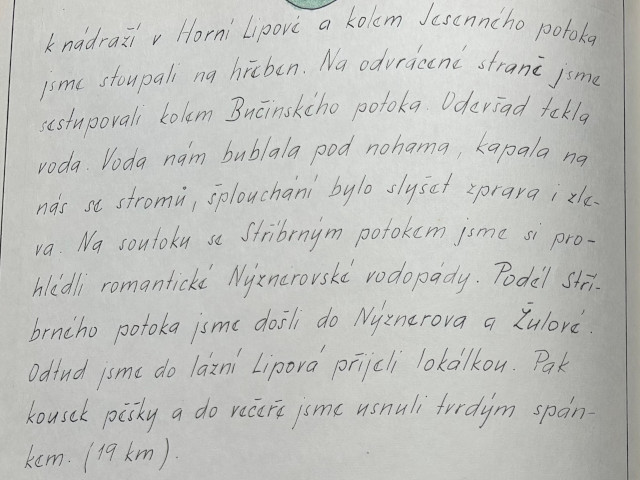 k nádraží v Horní Lipové a kolem Jesenného potoka
jsme stoupali na hřeben. Na odvrácené straně jsme
sestupovali kolem Bučinského potoka. Odevšad tekla
voda. Voda nám bublala pod nohama, kapala na
nás se stromů, šplouchání bylo slyšet zprava i zle-
va. Na soutoku se Stříbrným potokem jsme si pro-
hlédli romantické Nýznerovské vodopády. Podél Stří-
brného potoka jsme došli do Nýznerova a Žulové.
Odtud jsme do lázní Lipová přijeli lokálkou. Pak
kousek pěšky a do večeře jsme usnuli tvrdým spán-
kem. (19 km).